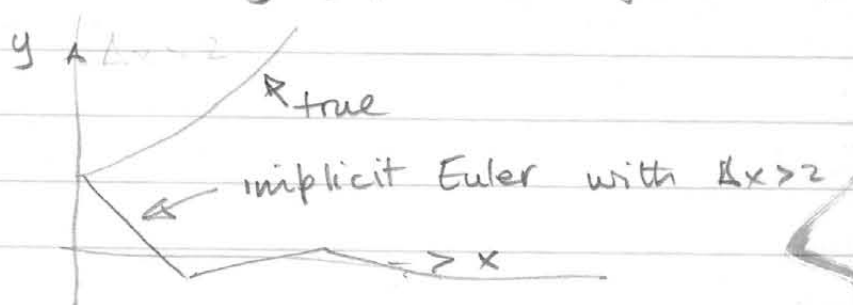 y
true
implicit Euler with Δx>2
x